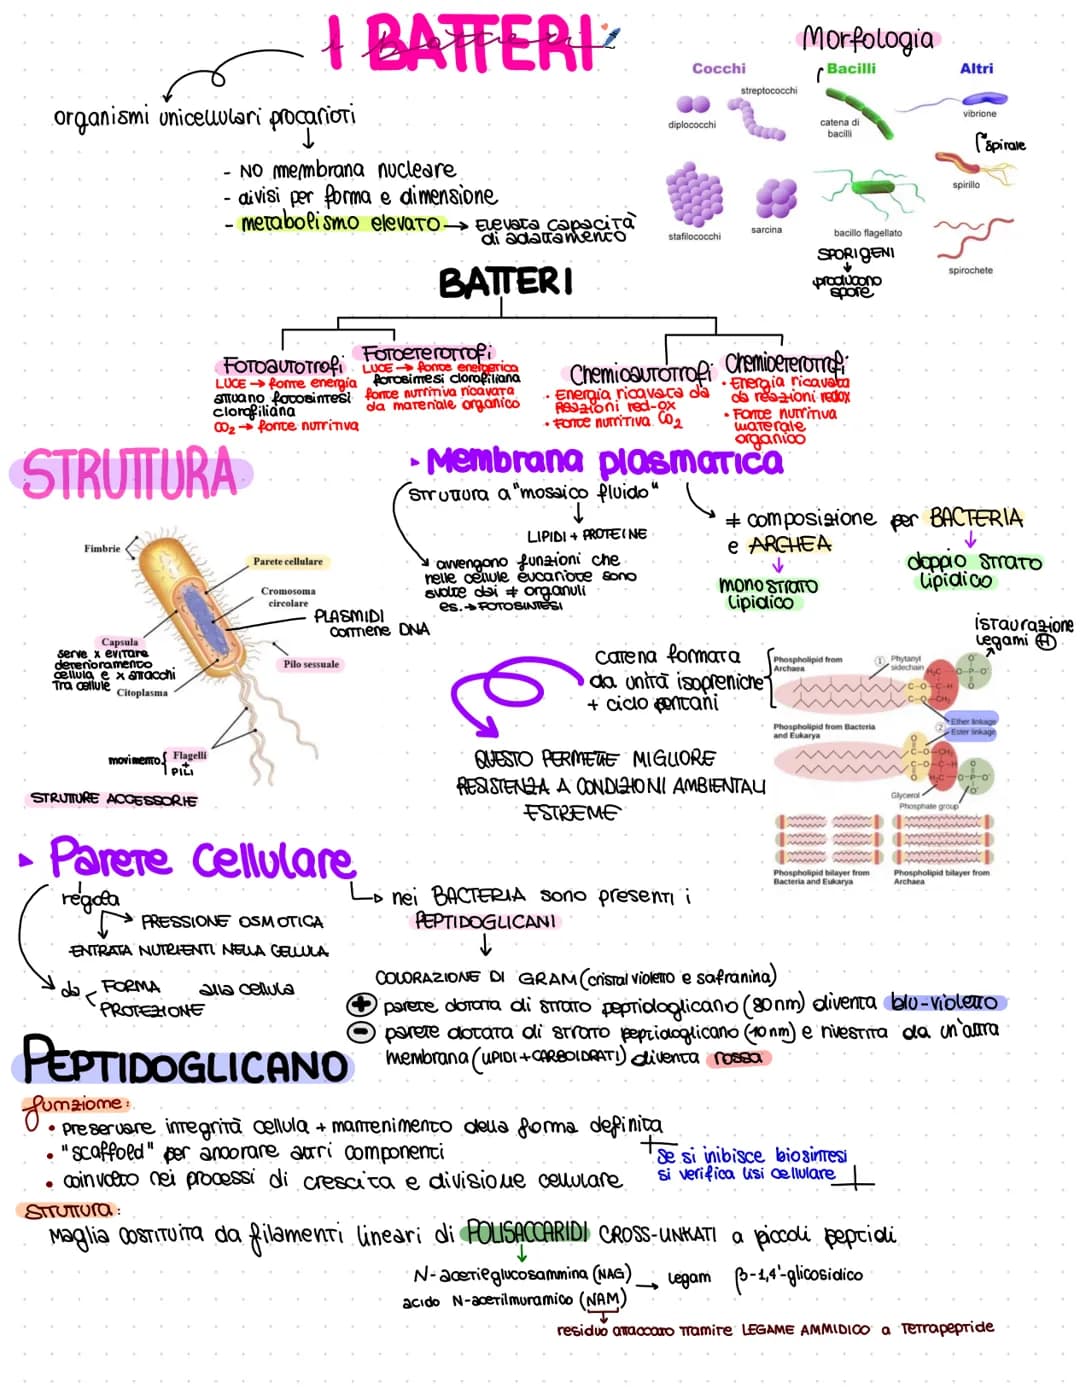 I BATTERI
i batteri
organismi unicellulari procarioti
- NO membrana nucleare
- divisi per forma e dimensione
- metabolismo elevato → Elevata capacità
di adattamento
Morfologia
Cocchi
Bacilli
Altri
diplococchi
streptococchi
catena di
bacilli
vibrione
spirale
spirillo
stafilococchi
sarcina
bacillo flagellato
SPORIGENI
producono
spore
spirochete
BATTERI
Fotoautotrofi
LUCE → fonte energia
attuano fotosintesi
clorofiliana
CO₂ → fonte nutritiva
Fotoeterotrofi
LUCE → fonte energerica
fotosintesi clorofiliana
fonte nutritiva ricavata
da materiale organico
Chemioautotrofi
• Energia ricavata da
Reazioni red-ox
• Fonte nutritiva CO₂
Chemioeterotrofi
• Energia ricavata
da reazioni redox
• Fonte nutritiva
materale
organico
STRUTTURA
Fimbrie
Parete cellulare
Cromosoma
circolare
PLASMIDI
contiene DNA
Capsula
serve x evitare
deterioramento
cellula e x attacchi
tra cellule
Citoplasma
Pilo sessuale
movimento
Flagelli
+
PILI
STRUTTURE ACCESSORIE
Membrana plasmatica
struttura a "mosaico fluido"
LIPIDI + PROTEINE
avvengono funzioni che
nelle cellule eucariote sono
svolte dai ≠ organuli
es. → FOTOSINTESI
≠ composizione per BACTERIA
e ARCHEA
mono strato
lipidico
doppio strato
lipidico
istaurazione
legami H
catena formata
da unità isopreniche
+ ciclo pentani
QUESTO PERMETTE MIGLIORE
RESISTENZA A CONDIZIONI AMBIENTALI
ESTREME
Phospholipid from
Archaea
① Phytanyl
sidechain
H₂C
C-O-C-H
C-O-CH₂
O-P-O⁻
Ether linkage
②
Ester linkage
Phospholipid from Bacteria
and Eukarya
C-O-CH₂
C-O-C-H
H₂C
O-P-O⁻
Glycerol
Phosphate group
Phospholipid bilayer from
Bacteria and Eukarya
Phospholipid bilayer from
Archaea
Parete cellulare
regola
PRESSIONE OSMOTICA
ENTRATA NUTRIENTI NELLA CELLULA
da
FORMA
PROTEZIONE
alla cellula
nei BACTERIA sono presenti i
PEPTIDOGLICANI
COLORAZIONE DI GRAM (cristal violetto e safranina)
+ parete dotata di strato peptidoglicano (80 nm) diventa blu-violetto
- parete dotata di strato peptidoglicano (10 nm) e rivestita da un'altra
membrana (LIPIDI + CARBOIDRATI) diventa rossa
PEPTIDOGLICANO
funzione:
• preservare integrità cellula + mantenimento della forma definita
• "scaffold" per ancorare altri componenti
• coinvolto nei processi di crescita e divisione cellulare
Se si inibisce biosintesi
si verifica lisi cellulare
struttura:
Maglia costituita da filamenti lineari di POLISACCARIDI CROSS-LINKATI a piccoli peptidi
N-acetilglucosammina (NAG)
acido N-acetilmuramico (NAM)
→ legam β-1,4'-glicosidico
residuo attaccato tramite LEGAME AMMIDICO a tetrapeptide